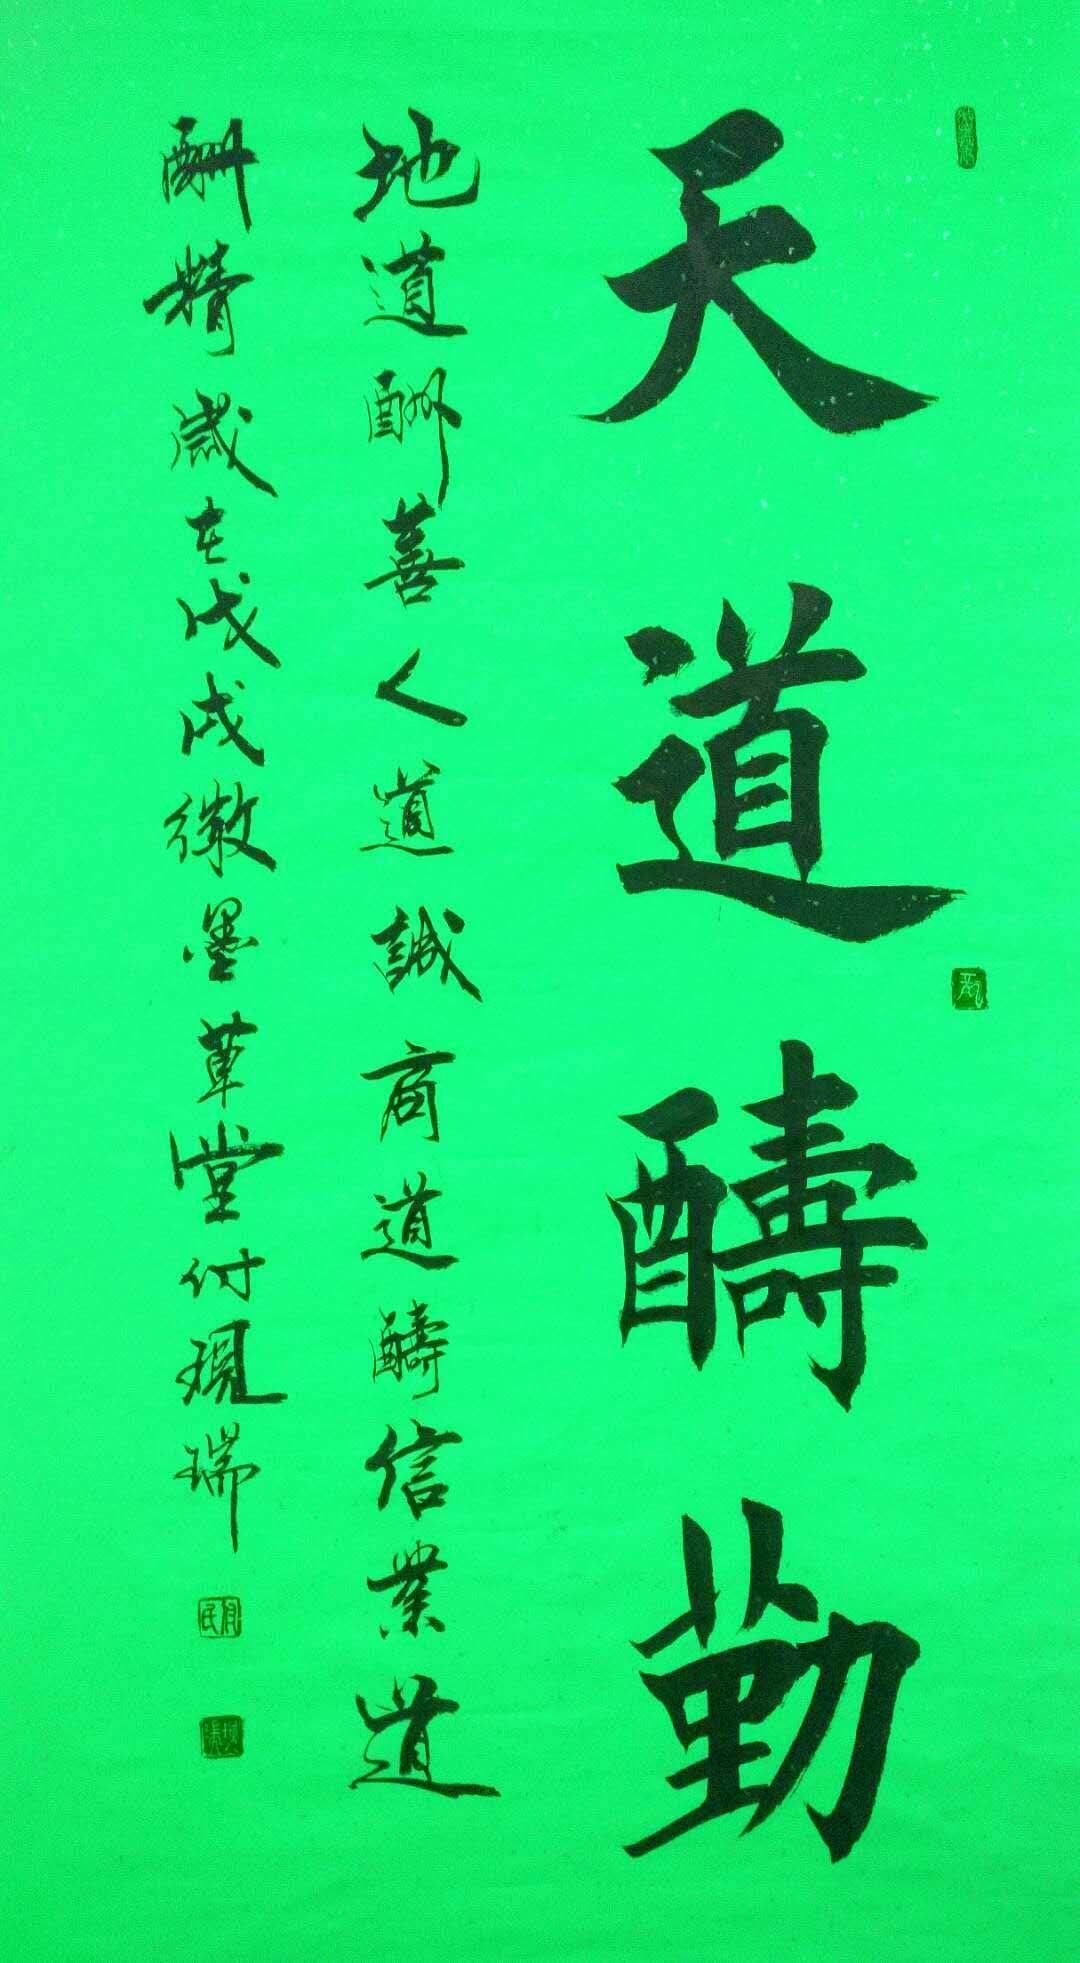 天道醻勤
地道酬善人道誠商道醻信業道
酬精歲在戊戌徽墨草堂付現瑞